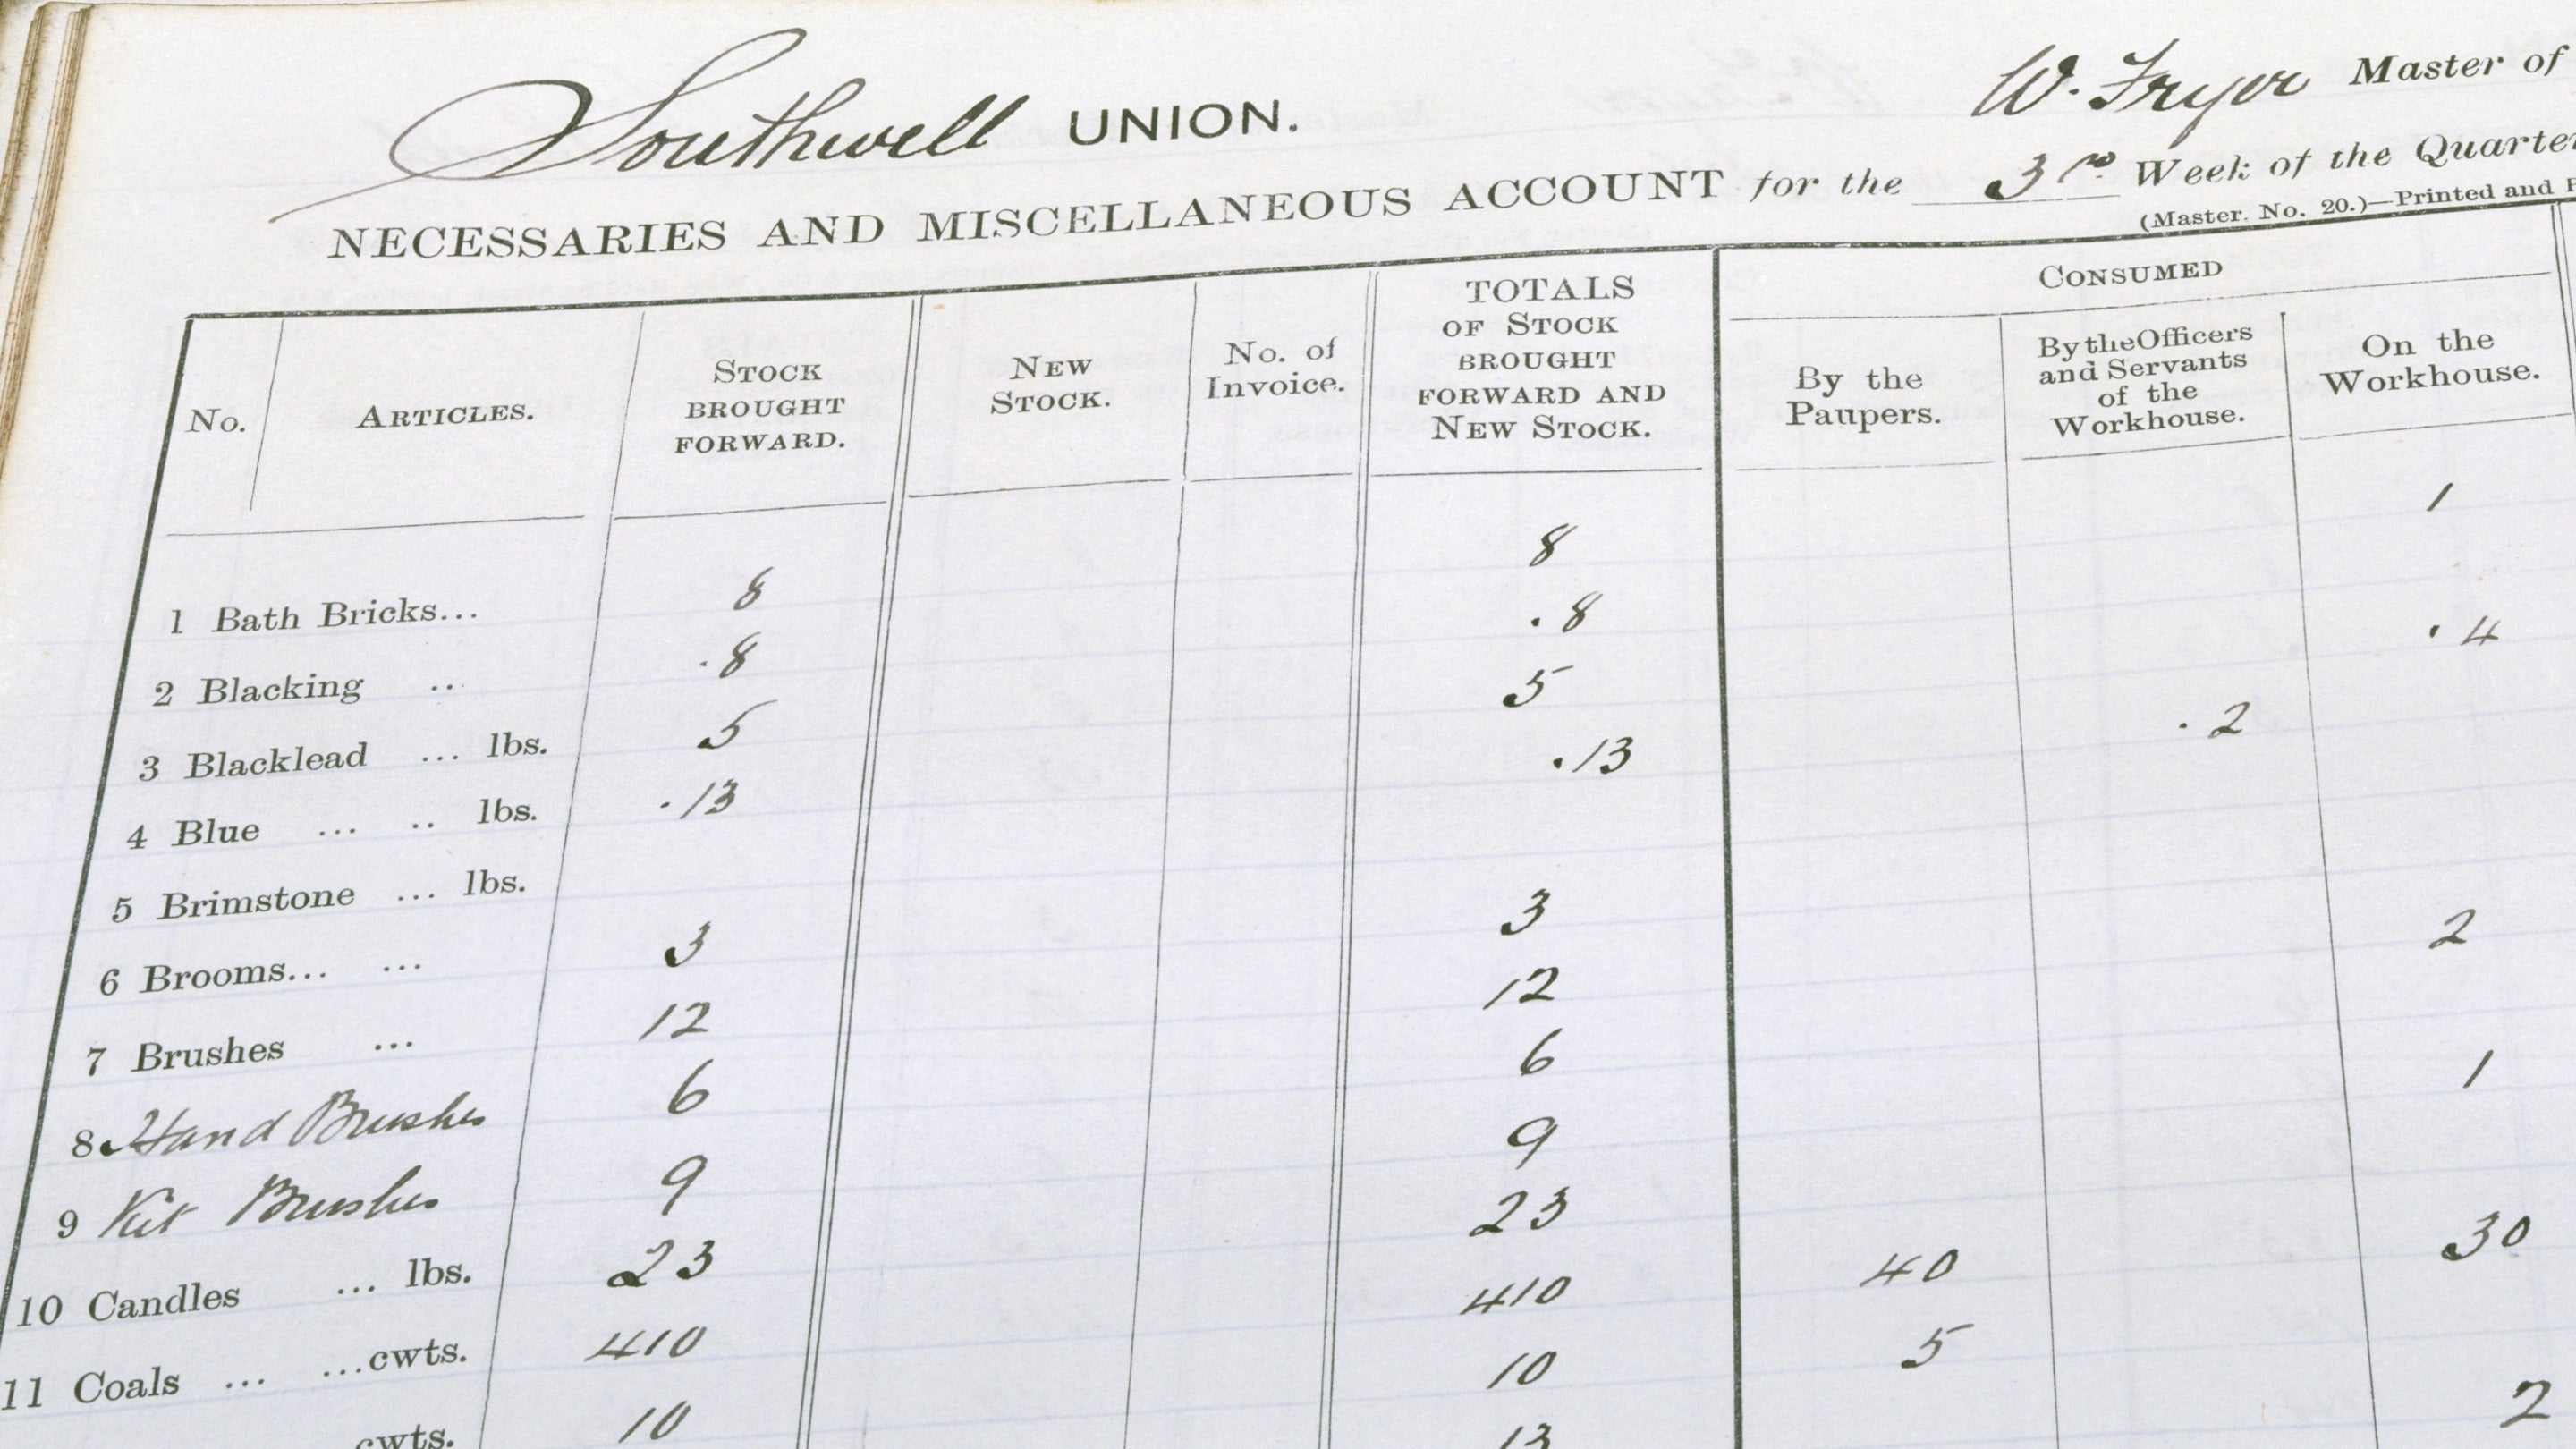 Southwell UNION.
W. Fryer Master of
NECESSARIES AND MISCELLANEOUS ACCOUNT for the 3rd Week of the Quarter
(Master. No. 20.)—Printed and
No.
ARTICLES.
STOCK
BROUGHT
FORWARD.
NEW
STOCK.
No. of
Invoice.
TOTALS
OF STOCK
BROUGHT
FORWARD AND
NEW STOCK.
CONSUMED
By the
Paupers.
By the Officers
and Servants
of the
Workhouse.
On the
Workhouse.
1 Bath Bricks... 8 8 1
2 Blacking .. .8 .8
3 Blacklead ... lbs. 5 5 .4
4 Blue ... .. lbs. .13 .13 .2
5 Brimstone ... lbs.
6 Brooms... ... 3 3
7 Brushes ... 12 12 2
8 Hand Brushes 6 6
9 Kit Brushes 9 9 1
10 Candles ... lbs. 23 23
11 Coals ... ...cwts. 410 410 40 30
cwts. 10 10 5
13 2